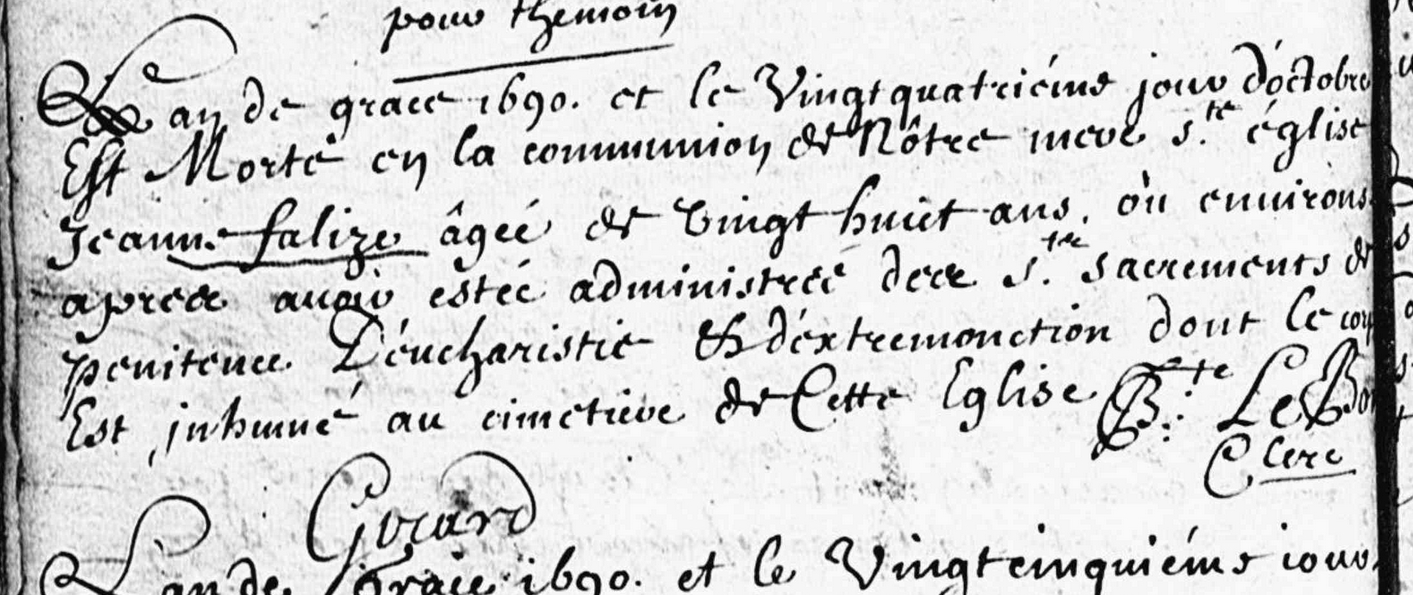 pour themoin
L'an de grace 1690. et le Vingt quatriéme jour d'octobre
Est Morte en la communion de Nôtre mere s.te église
Jeanne falize âgée de vingt huict ans, où environs
apres auoir estée administrée des s.ts sacrements de
penitence L'éucharistie & d'éxtremonction dont le corp
Est jnhumé au cimetiere de Cette Eglise B:te Le Bon
Clerc
Gerard
L'an de Grace 1690. et le Vingtcinquiéme jour